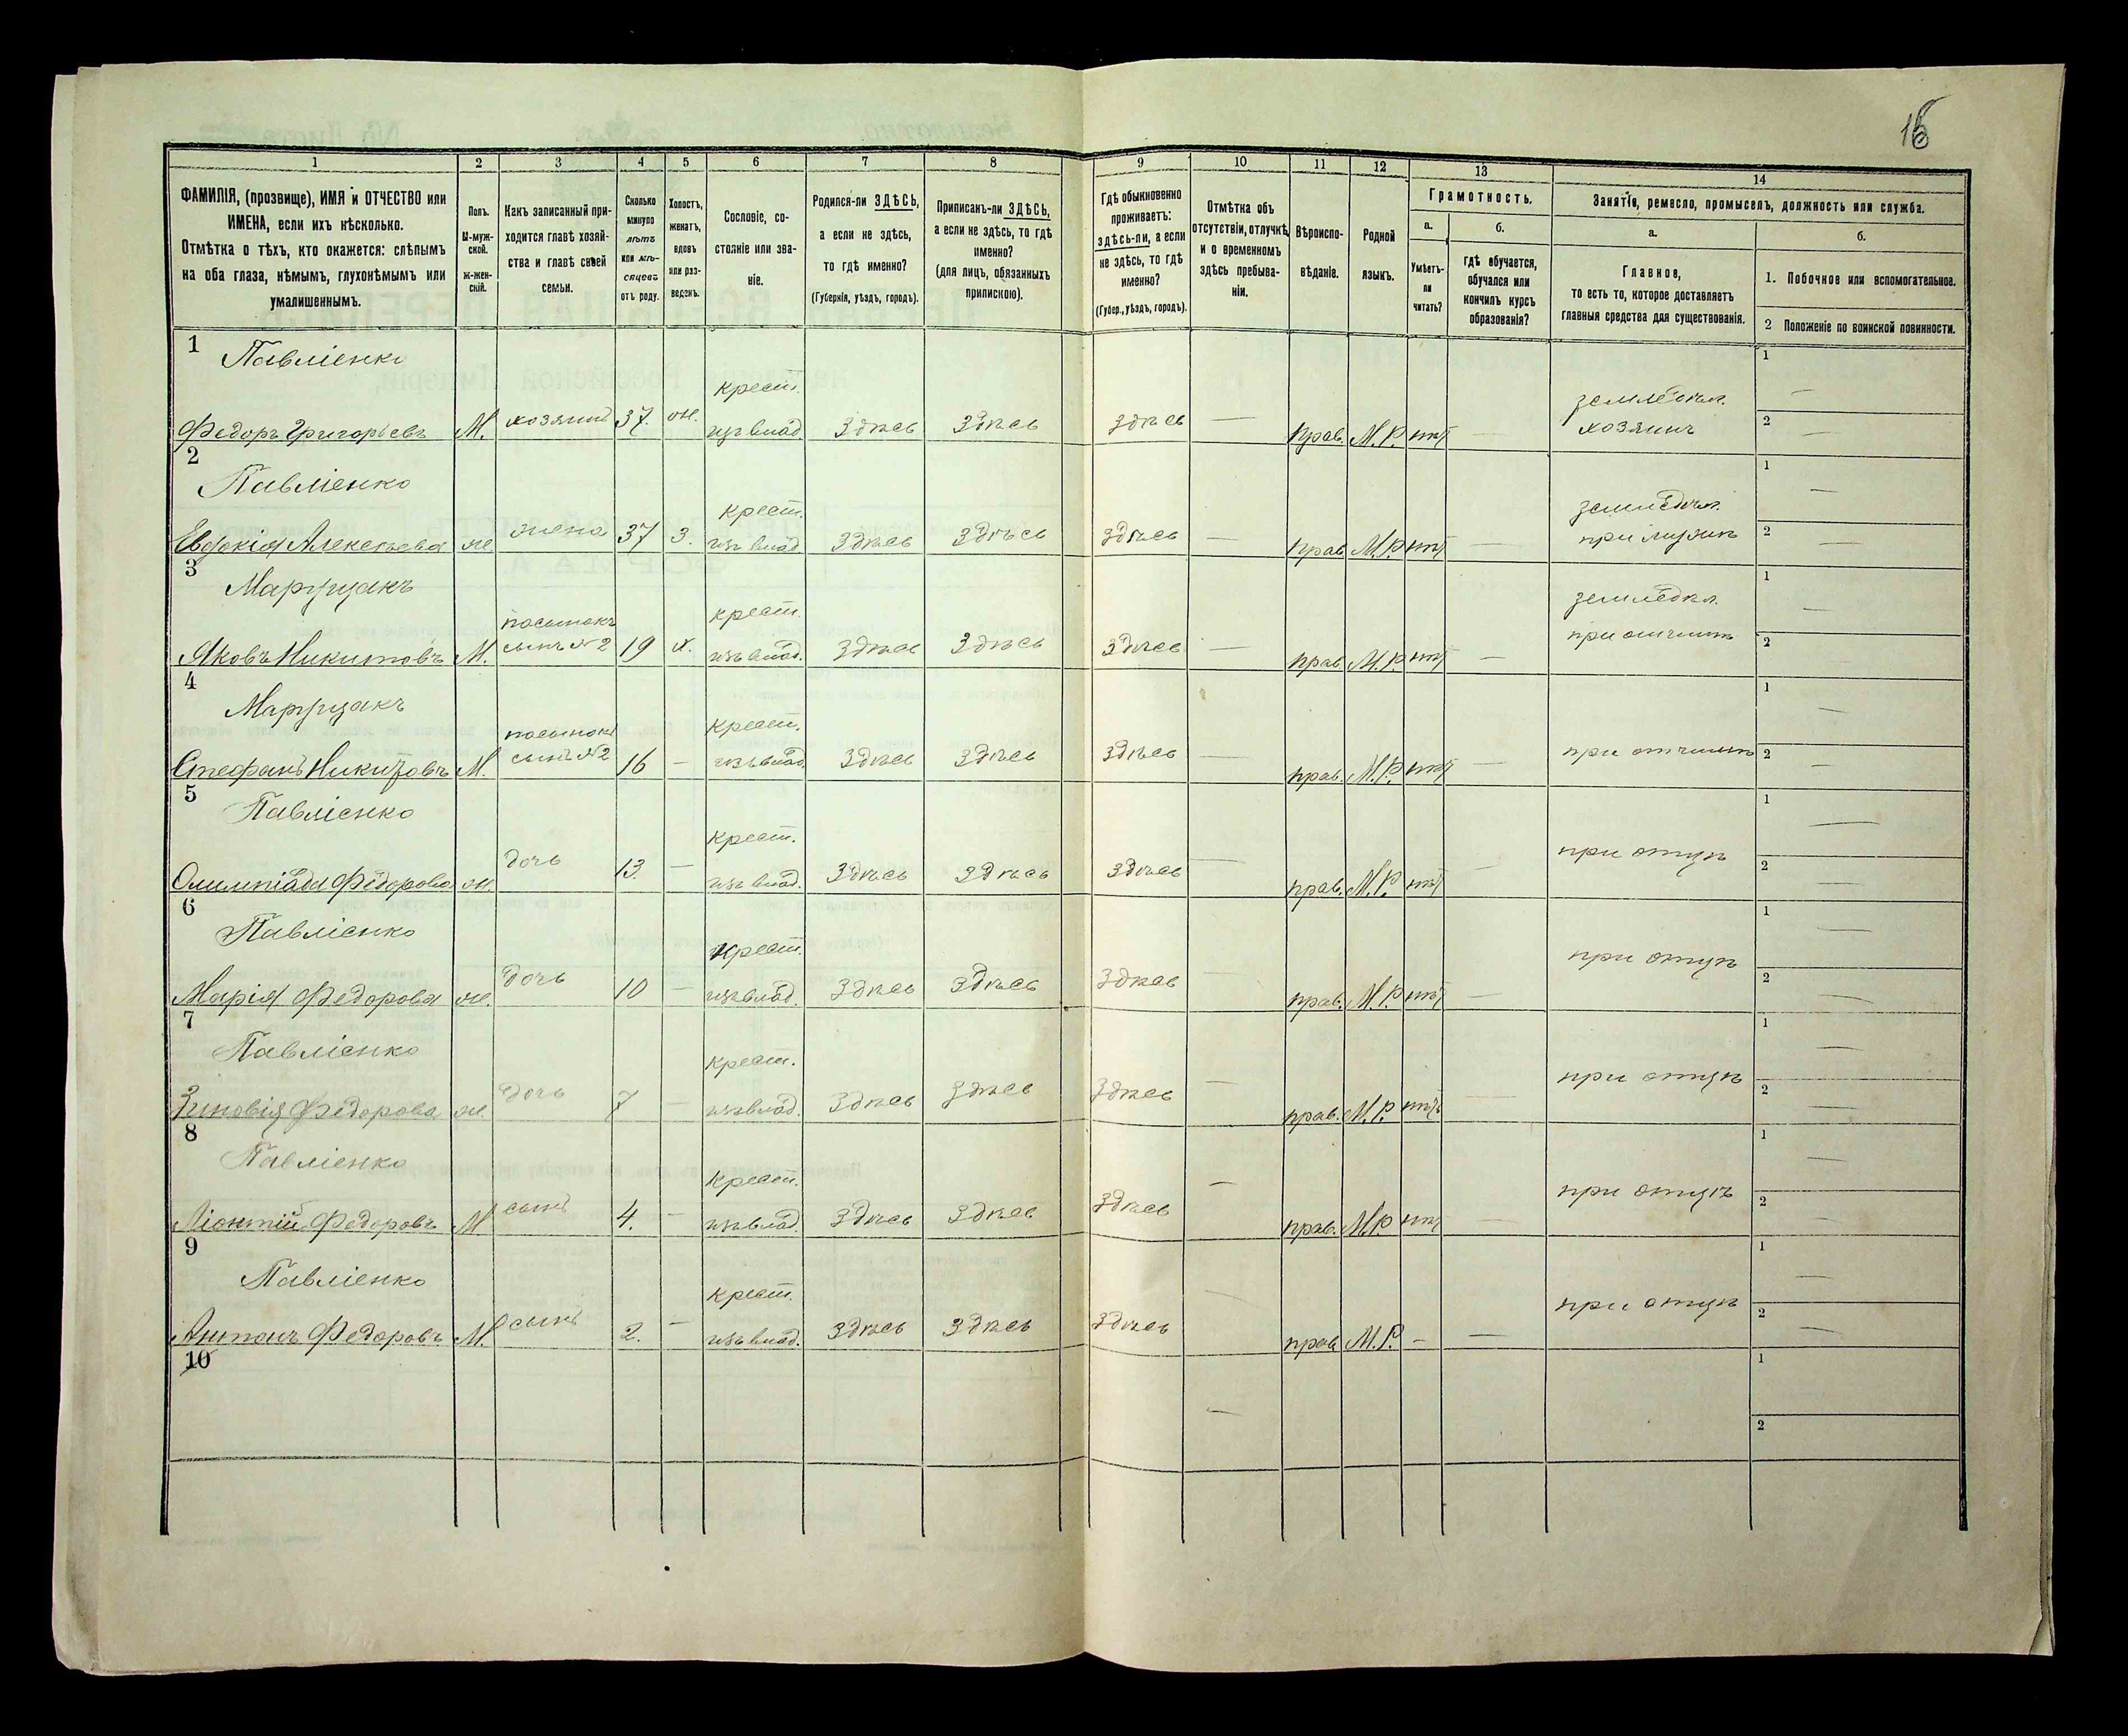 16
1 2 3 4 5 6 7 8 9 10 11 12 13 14
ФАМИЛІЯ, (прозвище), ИМЯ и ОТЧЕСТВО или
ИМЕНА, если ихъ нѣсколько.
Отмѣтка о тѣхъ, кто окажется: слѣпымъ
на оба глаза, нѣмымъ, глухонѣмымъ или
умалишеннымъ.
Полъ.
М-муж-
ской.
Ж-жен-
скій.
Какъ записанный при-
ходится главѣ хозяй-
ства и главѣ своей
семьи.
Сколько
минуло
лѣтъ
или мѣ-
сяцевъ
отъ роду.
Холостъ,
женатъ,
вдовъ
или раз-
веденъ.
Сословіе, со-
стояніе или зва-
ніе.
Родился-ли ЗДѢСЬ,
а если не здѣсь,
то гдѣ именно?
(Губернія, уѣздъ, городъ).
Приписанъ-ли ЗДѢСЬ,
а если не здѣсь, то гдѣ
именно?
(для лицъ, обязанныхъ
припискою).
Гдѣ обыкновенно
проживаетъ:
здѣсь-ли, а если
не здѣсь, то гдѣ
именно?
(Губер., уѣздъ, городъ).
Отмѣтка объ
отсутствіи, отлучкѣ
и о временномъ
здѣсь пребыва-
ніи.
Вѣроиспо-
вѣданіе.
Родной
языкъ.
Грамотность.
а.
Умѣетъ-
ли
читать?
б.
гдѣ обучается,
обучался или
кончилъ курсъ
образованія?
Занятіе, ремесло, промыселъ, должность или служба.
а.
Главное,
то есть то, которое доставляетъ
главныя средства для существованія.
б.
1. Побочное или вспомогательное.
2 Положеніе по воинской повинности.
1 Павліенко крест. земледѣл. 1 —
Федоръ Григорьевъ М. хозяинъ 37. ж. изъ влад. Здѣсь Здѣсь здѣсь — Прав. М.Р. нѣт — хозяинъ 2 —
2 Павліенко крест. земледѣл. 1 —
Евдокія Алексѣева ж. жена 37 з. изъ влад. Здѣсь Здѣсь здѣсь — прав М.Р. нѣт — при мужѣ 2 —
3 Марущакъ пасынокъ крест. земледѣл. 1 —
Яковъ Никитовъ М. сынъ №2 19 х. изъ влад. Здѣсь Здѣсь Здѣсь — прав М.Р. нѣт — при отчимѣ 2
4 Марущакъ пасынокъ крест. 1 —
Стефанъ Никитовъ М. сынъ №2 16 — изъ влад Здѣсь Здѣсь Здѣсь — прав. М.Р. нѣт — при отчимѣ 2 —
5 Павліенко крест. 1 —
Олимпіада Федорова ж. дочь 13. — изъ влад. Здѣсь Здѣсь Здѣсь — прав. М.Р. нѣт — при отцѣ 2 —
6 Павліенко крест. 1 —
Марія Федорова ж. дочь 10 — изъ влад. Здѣсь Здѣсь Здѣсь прав. М.Р. нѣт — при отцѣ 2 —
7 Павліенко крест. 1 —
Зиновія Федорова ж. дочь 7 — изъ влад. Здѣсь Здѣсь Здѣсь — прав. М.Р. нѣтъ — при отцѣ 2 —
8 Павліенко крест. 1 —
Ліонтій Федоровъ М сынъ 4. — изъ влад. Здѣсь Здѣсь Здѣсь — прав. М.Р. нѣт — при отцѣ 2 —
9 Павліенко крест. 1 —
Антонъ Федоровъ М. сынъ 2. — изъ влад. Здѣсь Здѣсь Здѣсь — прав М.Р. — — при отцѣ 2 —
10 — 1
2